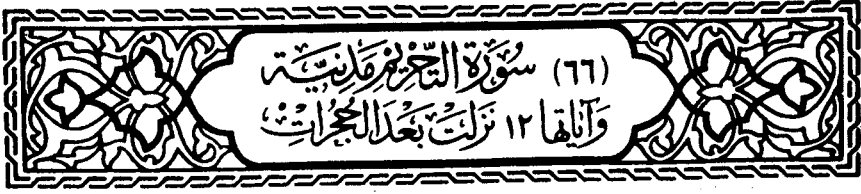 (٦٦) سُورَة التَّحْرِيمِ مَدَنِيَّة
وَآيَاتُهَا ١٢ نَزَلَتْ بَعْدَ الْحُجُرَاتِ